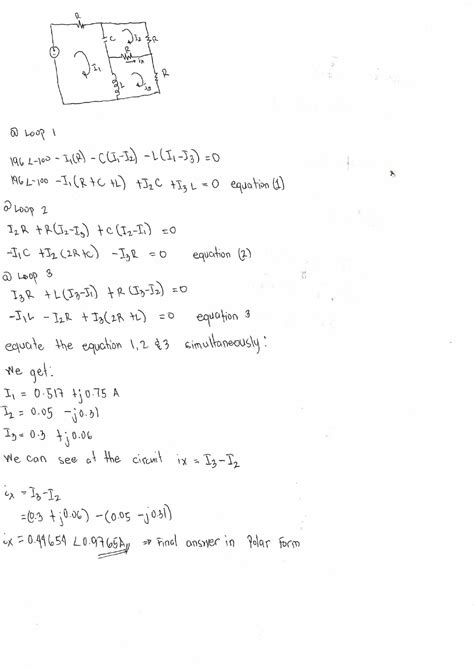 R
C
I2
R
R
ix
I1
L
I3
R
@ Loop 1
196∠-100 - I1(R) - C(I1-I2) - L(I1-I3) = 0
196∠-100 - I1(R+C+L) + I2C + I3L = 0 equation (1)
@ Loop 2
I2R + R(I2-I3) + C(I2-I1) = 0
-I1C + I2(2R+C) - I3R = 0 equation (2)
@ Loop 3
I3R + L(I3-I1) + R(I3-I2) = 0
-I1L - I2R + I3(2R+L) = 0 equation 3
equate the equation 1,2 & 3 simultaneously:
We get:
I1 = 0.517 + j0.75 A
I2 = 0.05 - j0.31
I3 = 0.3 + j0.06
We can see at the circuit ix = I3-I2
ix = I3-I2
= (0.3 + j0.06) - (0.05 - j0.31)
ix = 0.44654 ∠0.9765A, ⇒ Final answer in Polar Form